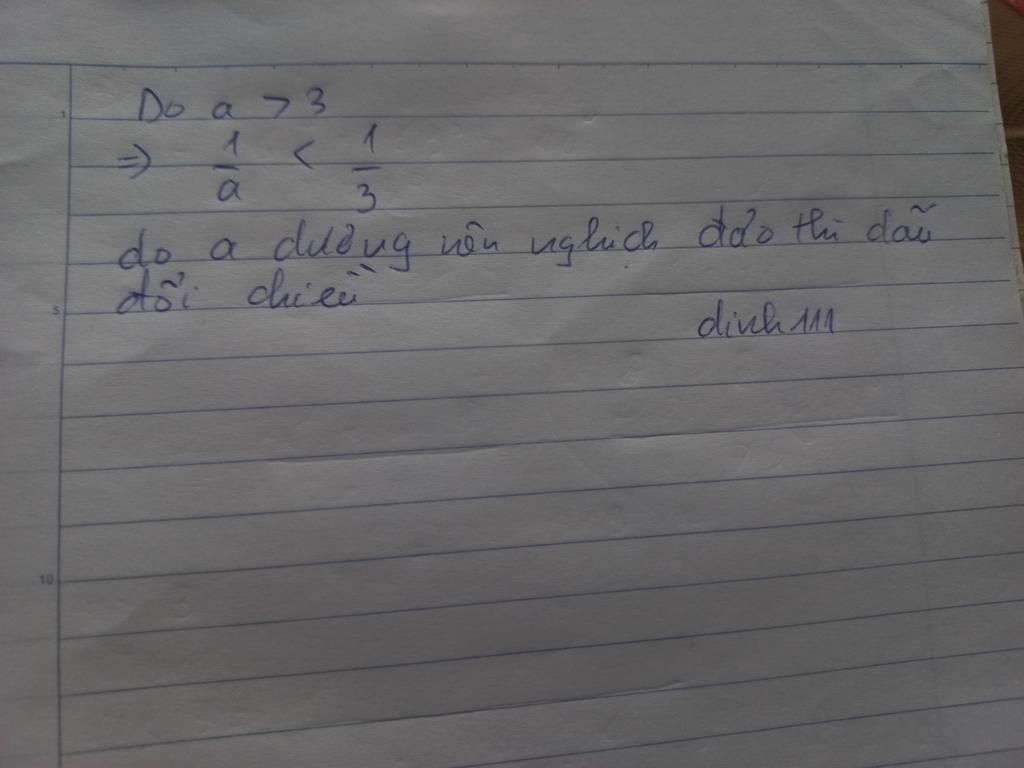 Do a > 3
⇒ 1/a < 1/3
do a dương nên nghịch đảo thì dấu
đổi chiều
dinh111
1
5
10